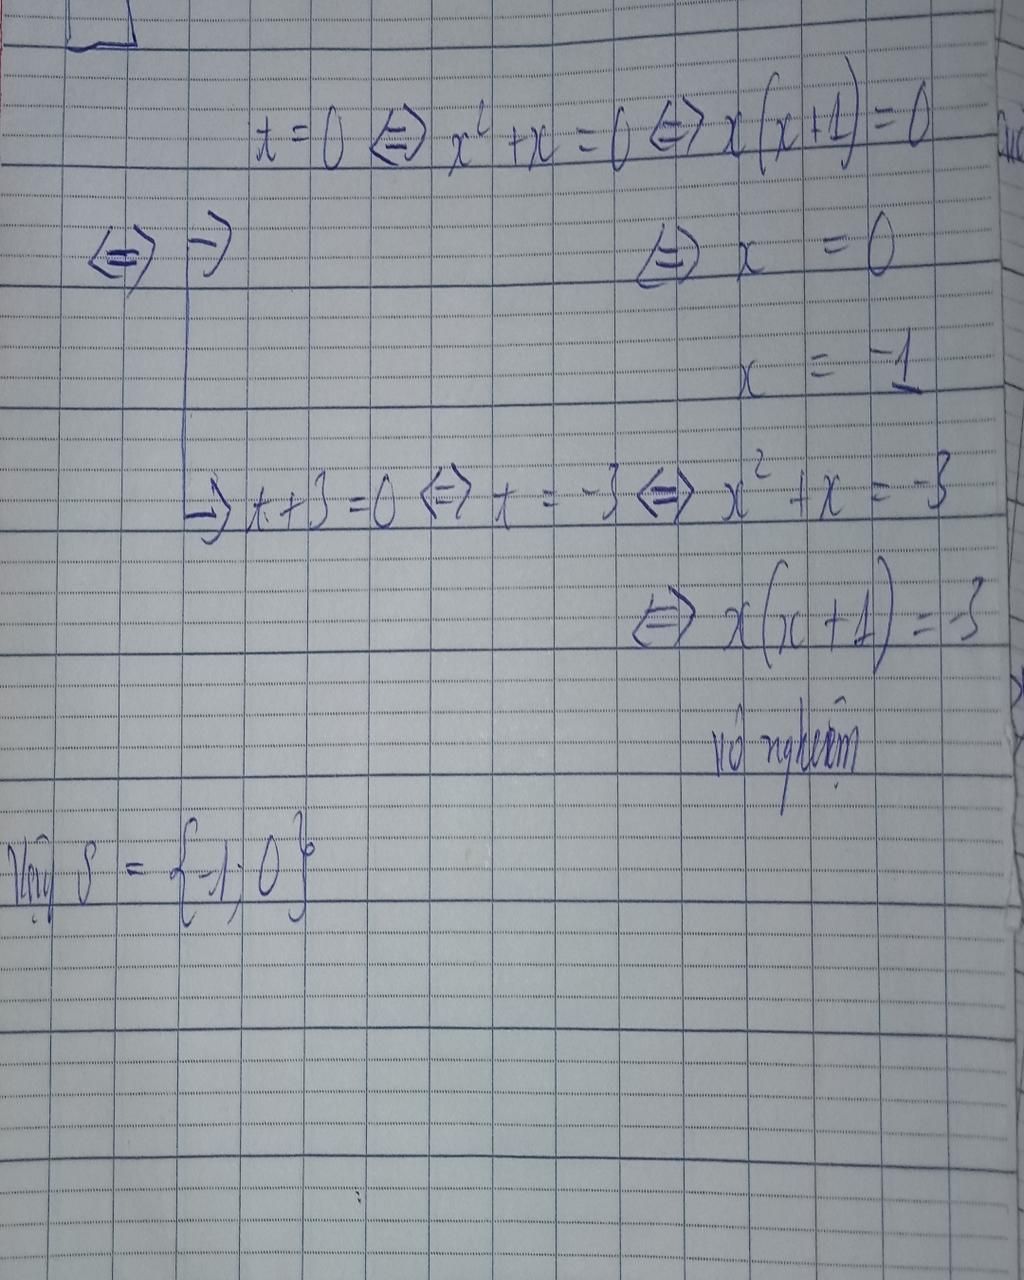 t = 0 ⇔ x² + x = 0 ⇔ x(x+1) = 0
⇔ → ⇔ x = 0
x = -1
→ t + 3 = 0 ⇔ t = -3 ⇔ x² + x = -3
⇔ x(x+1) = -3
vô nghiệm
Vậy S = {-1; 0}